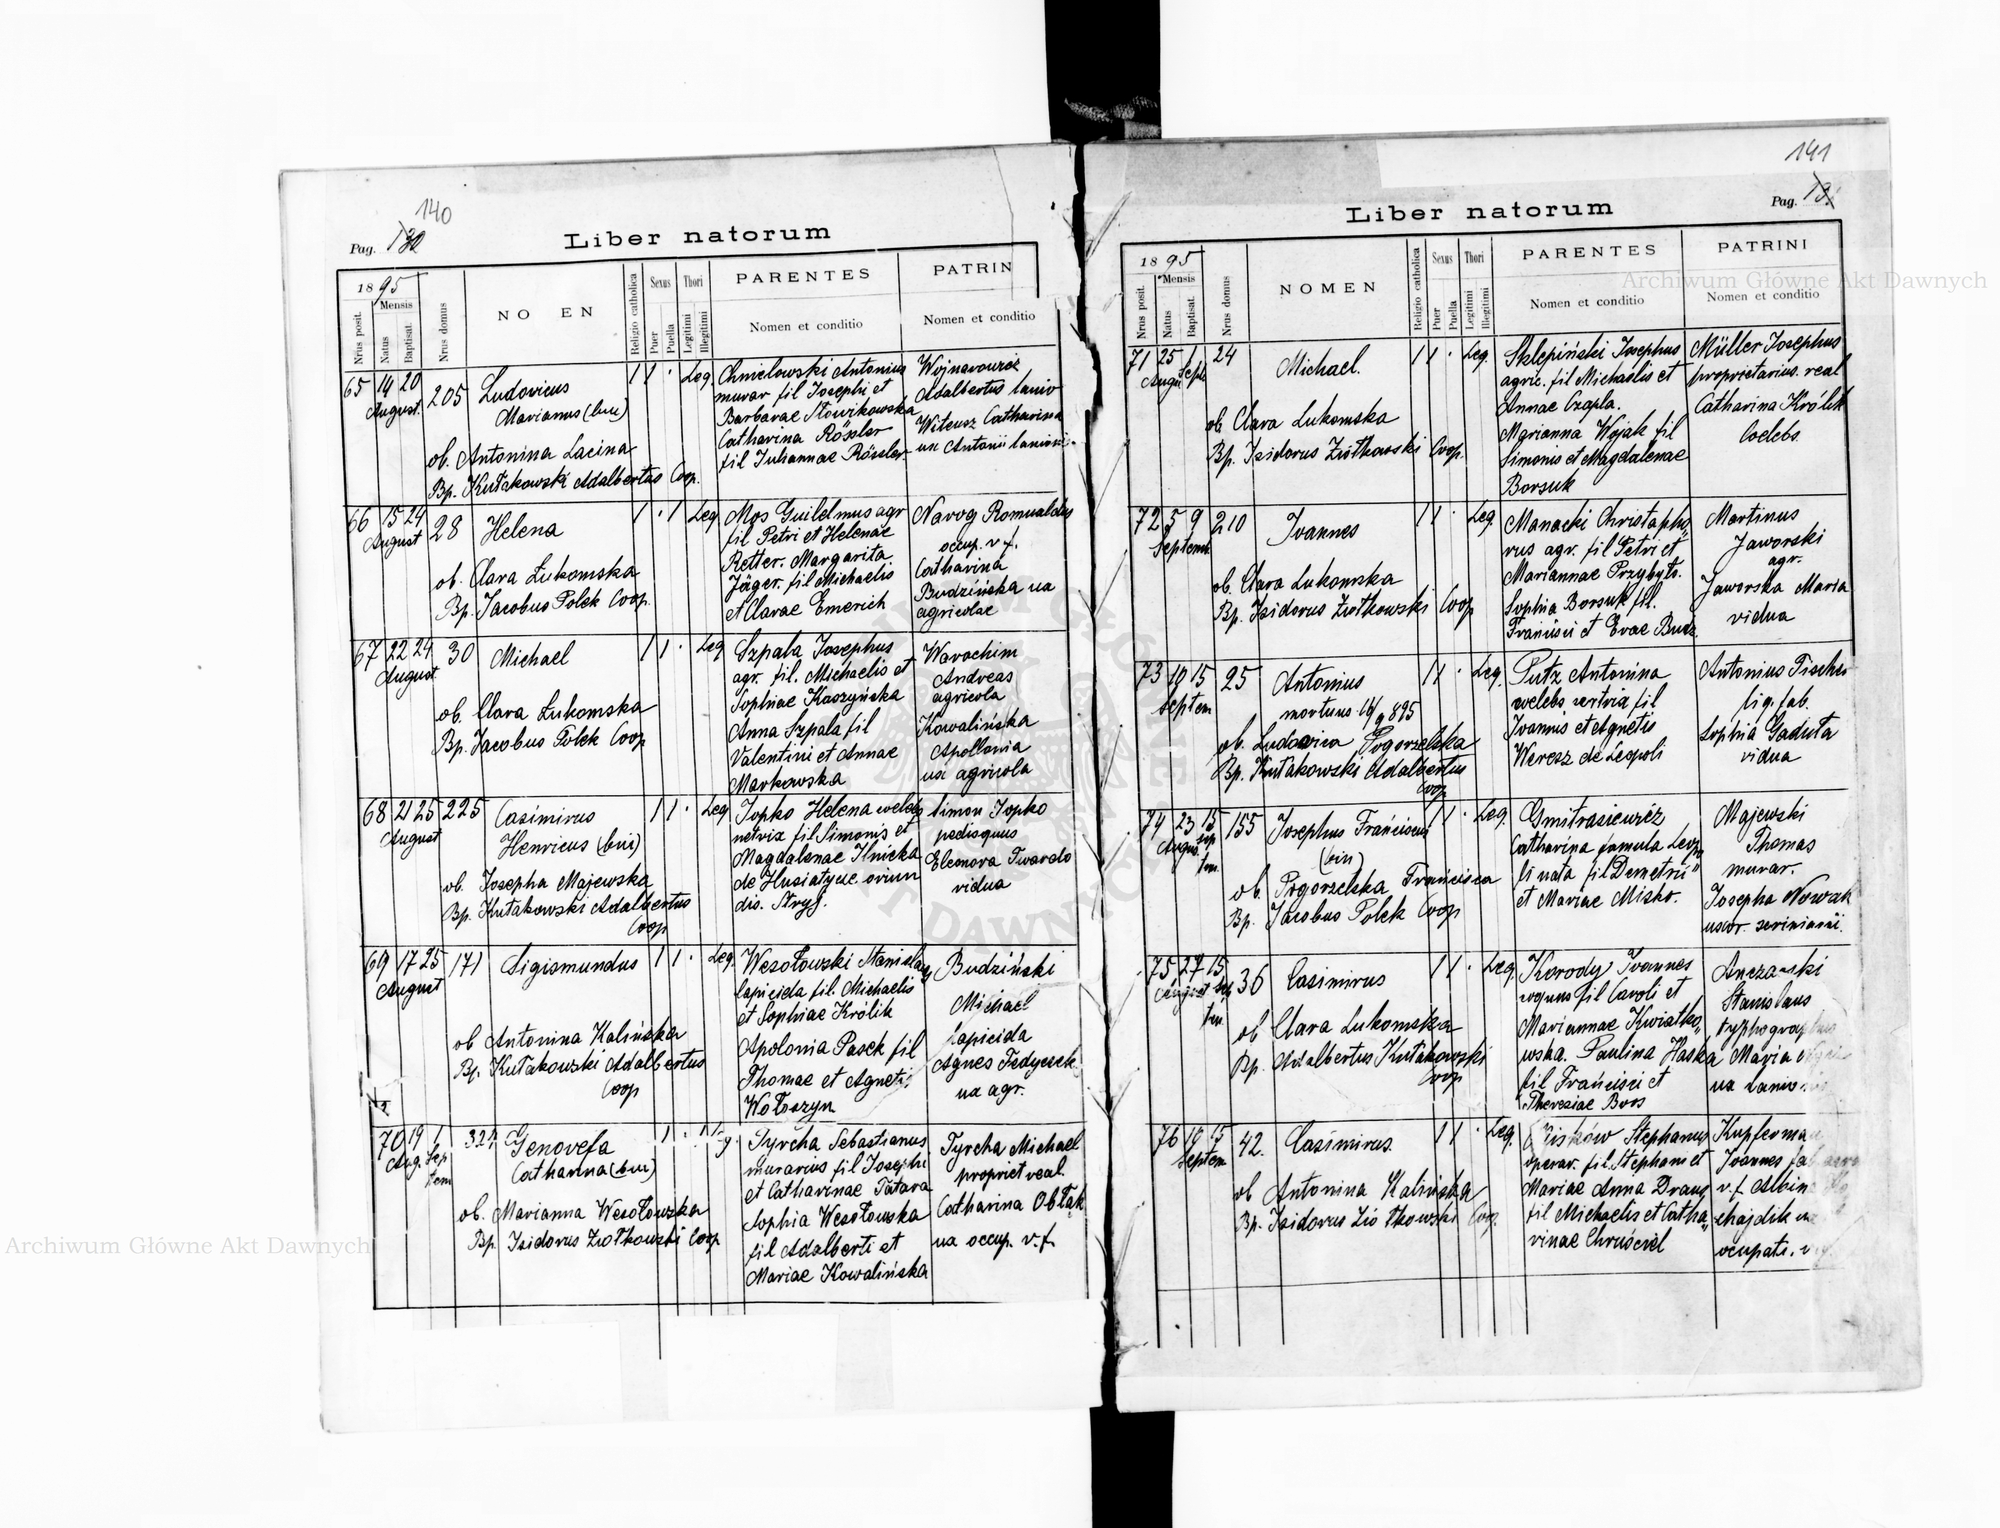 140
Pag. 130
Liber natorum
1895
Mensis
Nrus posit.
Natus
Baptisat.
Nrus domus
NO EN
Religio catholica
Sexus
Puer
Puella
Thori
Legitimi
Illegitimi
PARENTES
Nomen et conditio
PATRIN
Nomen et conditio
65 14 20 August. 205 Ludovicus
Marianus (bin)
ob. Antonina Lacina
Bp. Kułakowski Adalbertus Coop.
1 1 · Leg.
Chmielowski Antonius
murar fil Josephi et
Barbarae Słowikowska
Catharina Rössler
fil Juliannae Rössler
Adalbertus lanio
Witeusz Catharina
ux Antonii lanioni
66 15 24 August 28 Helena
ob. Clara Łukomska
Bp. Jacobus Polek Coop.
1 · 1 Leg
Mos Guilelmus agr
fil Petri et Helenae
Retter. Margarita
Jäger. fil Michaelis
et Clarae Emerich
Navog Romualdus
occup. v. f.
Catharina
Budzińska ux
agricolae
67 22 24 August 30 Michael
ob. Clara Łukomska
Bp. Jacobus Polek Coop
1 1 · Leg
Szpala Josephus
agr. fil. Michaelis et
Sophiae Kaszyńska
Anna Szpala fil
Valentini et Annae
Markowska
Worochim
Andreas
agricola
Kowalińska
Apollonia
ux agricola
68 21 25 August 225 Casimirus
Henricus (bin)
ob. Josepha Majewska
Bp. Kułakowski Adalbertus
Coop
1 1 · Leg
Jopko Helena
fil. Simonis et
Magdalenae Ilnicka
de Husiatyn
dis. Stryj.
Simon Jopko
pedisquus
Eleonora Twardo
vidua
69 17 25 August 171 Sigismundus
ob Antonina Kalińska
Bp. Kułakowski Adalbertus
Coop
1 1 · Leg.
Wesołowski Stanislaus
lapicida fil. Michaelis
et Sophiae Królik
Apolonia Pasek fil
Thomae et Agnetis
Wołoszyn
Budziński
Michael
lapicida
Agnes Fedyczek
ux agr.
70 19 Aug. 1 Septem 321 Genovefa
Catharina (bin)
ob. Marianna Wesołowska
Bp. Isidorus Ziołkowski Coop
Tyrcha Sebastianus
murarius fil Josephi
et Catharinae Tatara
Sophia Wesołowska
fil Adalberti et
Mariae Kowalińska
Tyrcha Michael
propriet real.
Catharina Obłąk
ux occup. v. f.
141
Pag. 13
Liber natorum
1895
Mensis
Nrus posit.
Natus
Baptisat.
Nrus domus
NOMEN
Religio catholica
Sexus
Puer
Puella
Thori
Legitimi
Illegitimi
PARENTES
Nomen et conditio
PATRINI
Nomen et conditio
71 25 August 1 Sept. 24 Michael.
ob Clara Lukomska
Bp. Isidorus Ziołkowski Coop.
1 1 · Leg.
Sklepiński Josephus
agric. fil Michaelis et
Annae Czapla.
Marianna Wojak fil
Simonis et Magdalenae
Borsuk
Müller Josephus
proprietarius real
Catharina Królik
Coelebs.
72 5 9 Septem. 210 Ioannes
ob. Clara Lukomska
Bp. Isidorus Ziołkowski Coop
1 1 · Leg.
Manacki Christopho
rus agr. fil Petri et
Mariannae Przybyło.
Sophia Borsuk fil.
Francisci et Evae Budz.
Martinus
Jaworski
agr.
Jaworska Maria
vidua
73 10 15 Septem 25 Antonius
mortuus 16/9 895
ob. Ludovica Pogorzelska
Bp. Kułakowski Adalbertus
Coop
1 1 · Leg.
Putz Antonina
fil
Ioannis et Agnetis
Weresz de Leopoli
Antonius Fischer
lig. fab.
Sophia Gaduła
vidua
74 23 August 15 Septem. 155 Josephus Franciscus
(bin)
ob. Pogorzelska Francisca
Bp. Jacobus Polek Coop
1 1 · Leg.
Gmitrasiewicz
Catharina famula Leopo
li nata fil Demetrii
et Mariae Misko.
Majewski
Thomas
murar.
Josepha Nowak
uxor. scriniarii.
75 27 August 15 Septem. 36 Casimirus
ob Clara Lukomska
Bp. Adalbertus Kułakowski
Coop
1 1 · Leg.
Korody Ioannes
fil Caroli et
Mariannae Kwiatko
wska. Paulina Haska
fil Francisci et
Theresiae Boos
Stanislaus
typhographus
Maria
ux lanio
76 10 15 Septem 42. Casimirus.
ob Antonina Kalińska
Bp. Isidorus Ziołkowski Coop.
1 1 · Leg.
Stephanus
operar. fil. Stephani et
Mariae Anna Draus
fil Michaelis et Catha
rinae Chruściel
Kupferman
Ioannes
v. f. Albina
chajdik ux
ocupati.
Archiwum Główne Akt Dawnych
Archiwum Główne Akt Dawnych